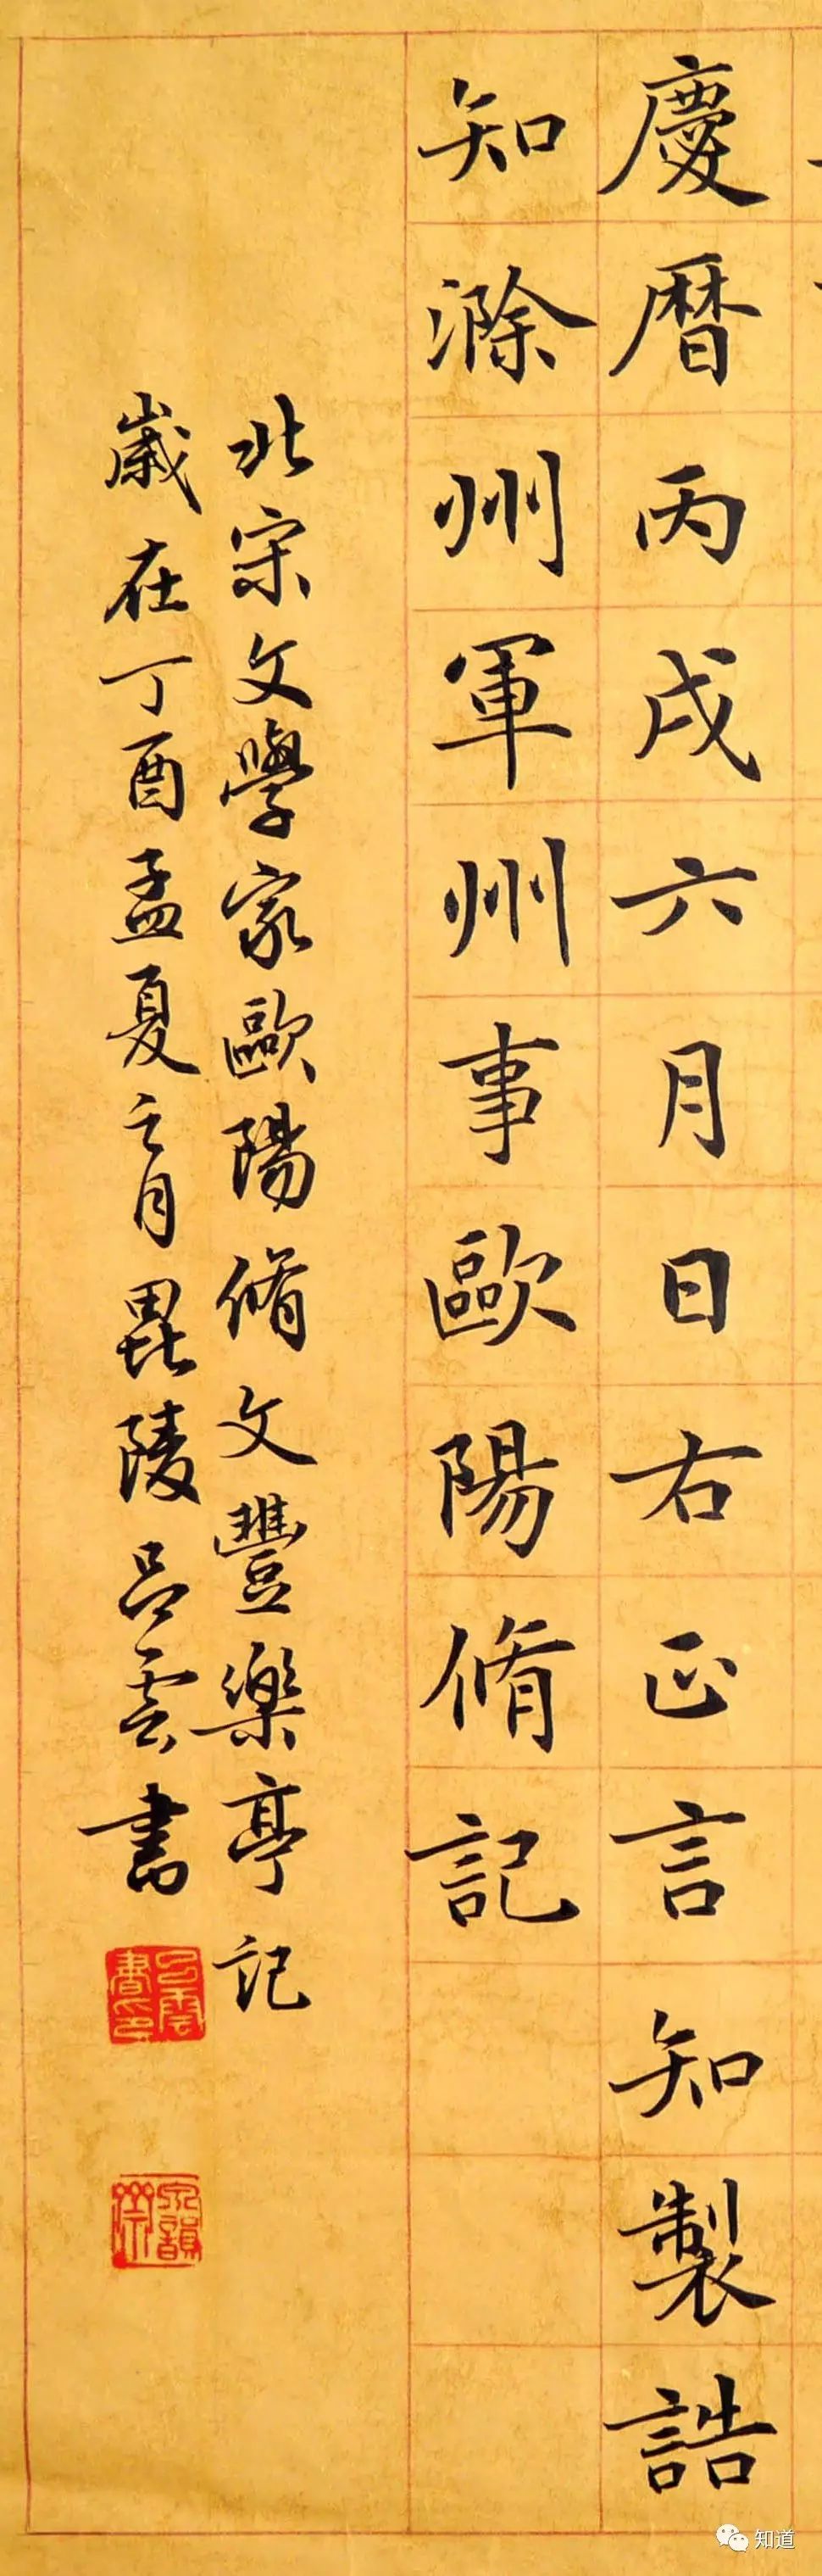 慶曆丙戌六月日右正言知製誥
知滁州軍州事歐陽脩記
北宋文學家歐陽脩文豐樂亭記
歲在丁酉孟夏之月毘陵呂雲書
知道